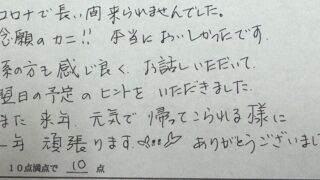 コロナで長い間来られませんでした。
念願のカニ!! 本当においしかったです。
係の方も感じ良く、お話しいただいて、
翌日の予定のヒントをいただきました。
また来年、元気で帰ってこられる様に
一年頑張ります。 ありがとうございまし
10点満点で 10 点